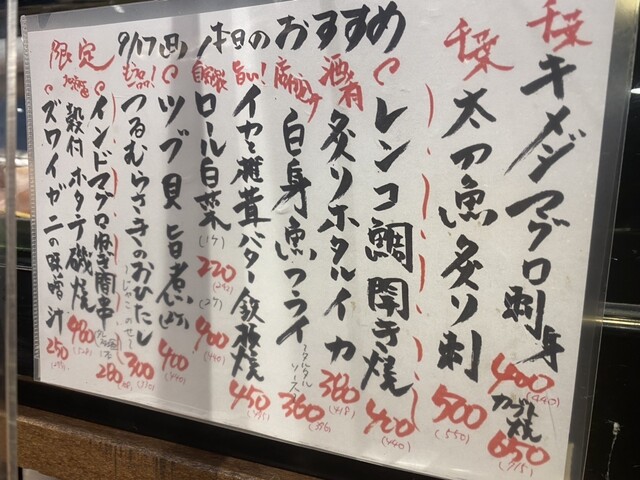 9/17 本日のおすすめ
千葉 キメジマグロ刺身 400 (440)
カブト焼 650 (715)
千葉 太刀魚炙り刺 500 (550)
レンコ鯛開き焼 400 (440)
酒肴 炙りホタルイカ 380 (418)
白身魚フライ 〜タルタルソース 360 (396)
旨い! イセミ椎茸バター鉄板焼 450 (495)
自家製 ロール白菜 (1ケ) 220 (242) (2ケ) 400 (440)
ツブ貝旨煮 400 (440)
つるむらさきのおひたし 〜じゃこのせ〜 300 (330)
インドマグロねぎ間串 280 (308)
殻付ホタテ磯焼 480 (528)
限定 ズワイガニの味噌汁 250